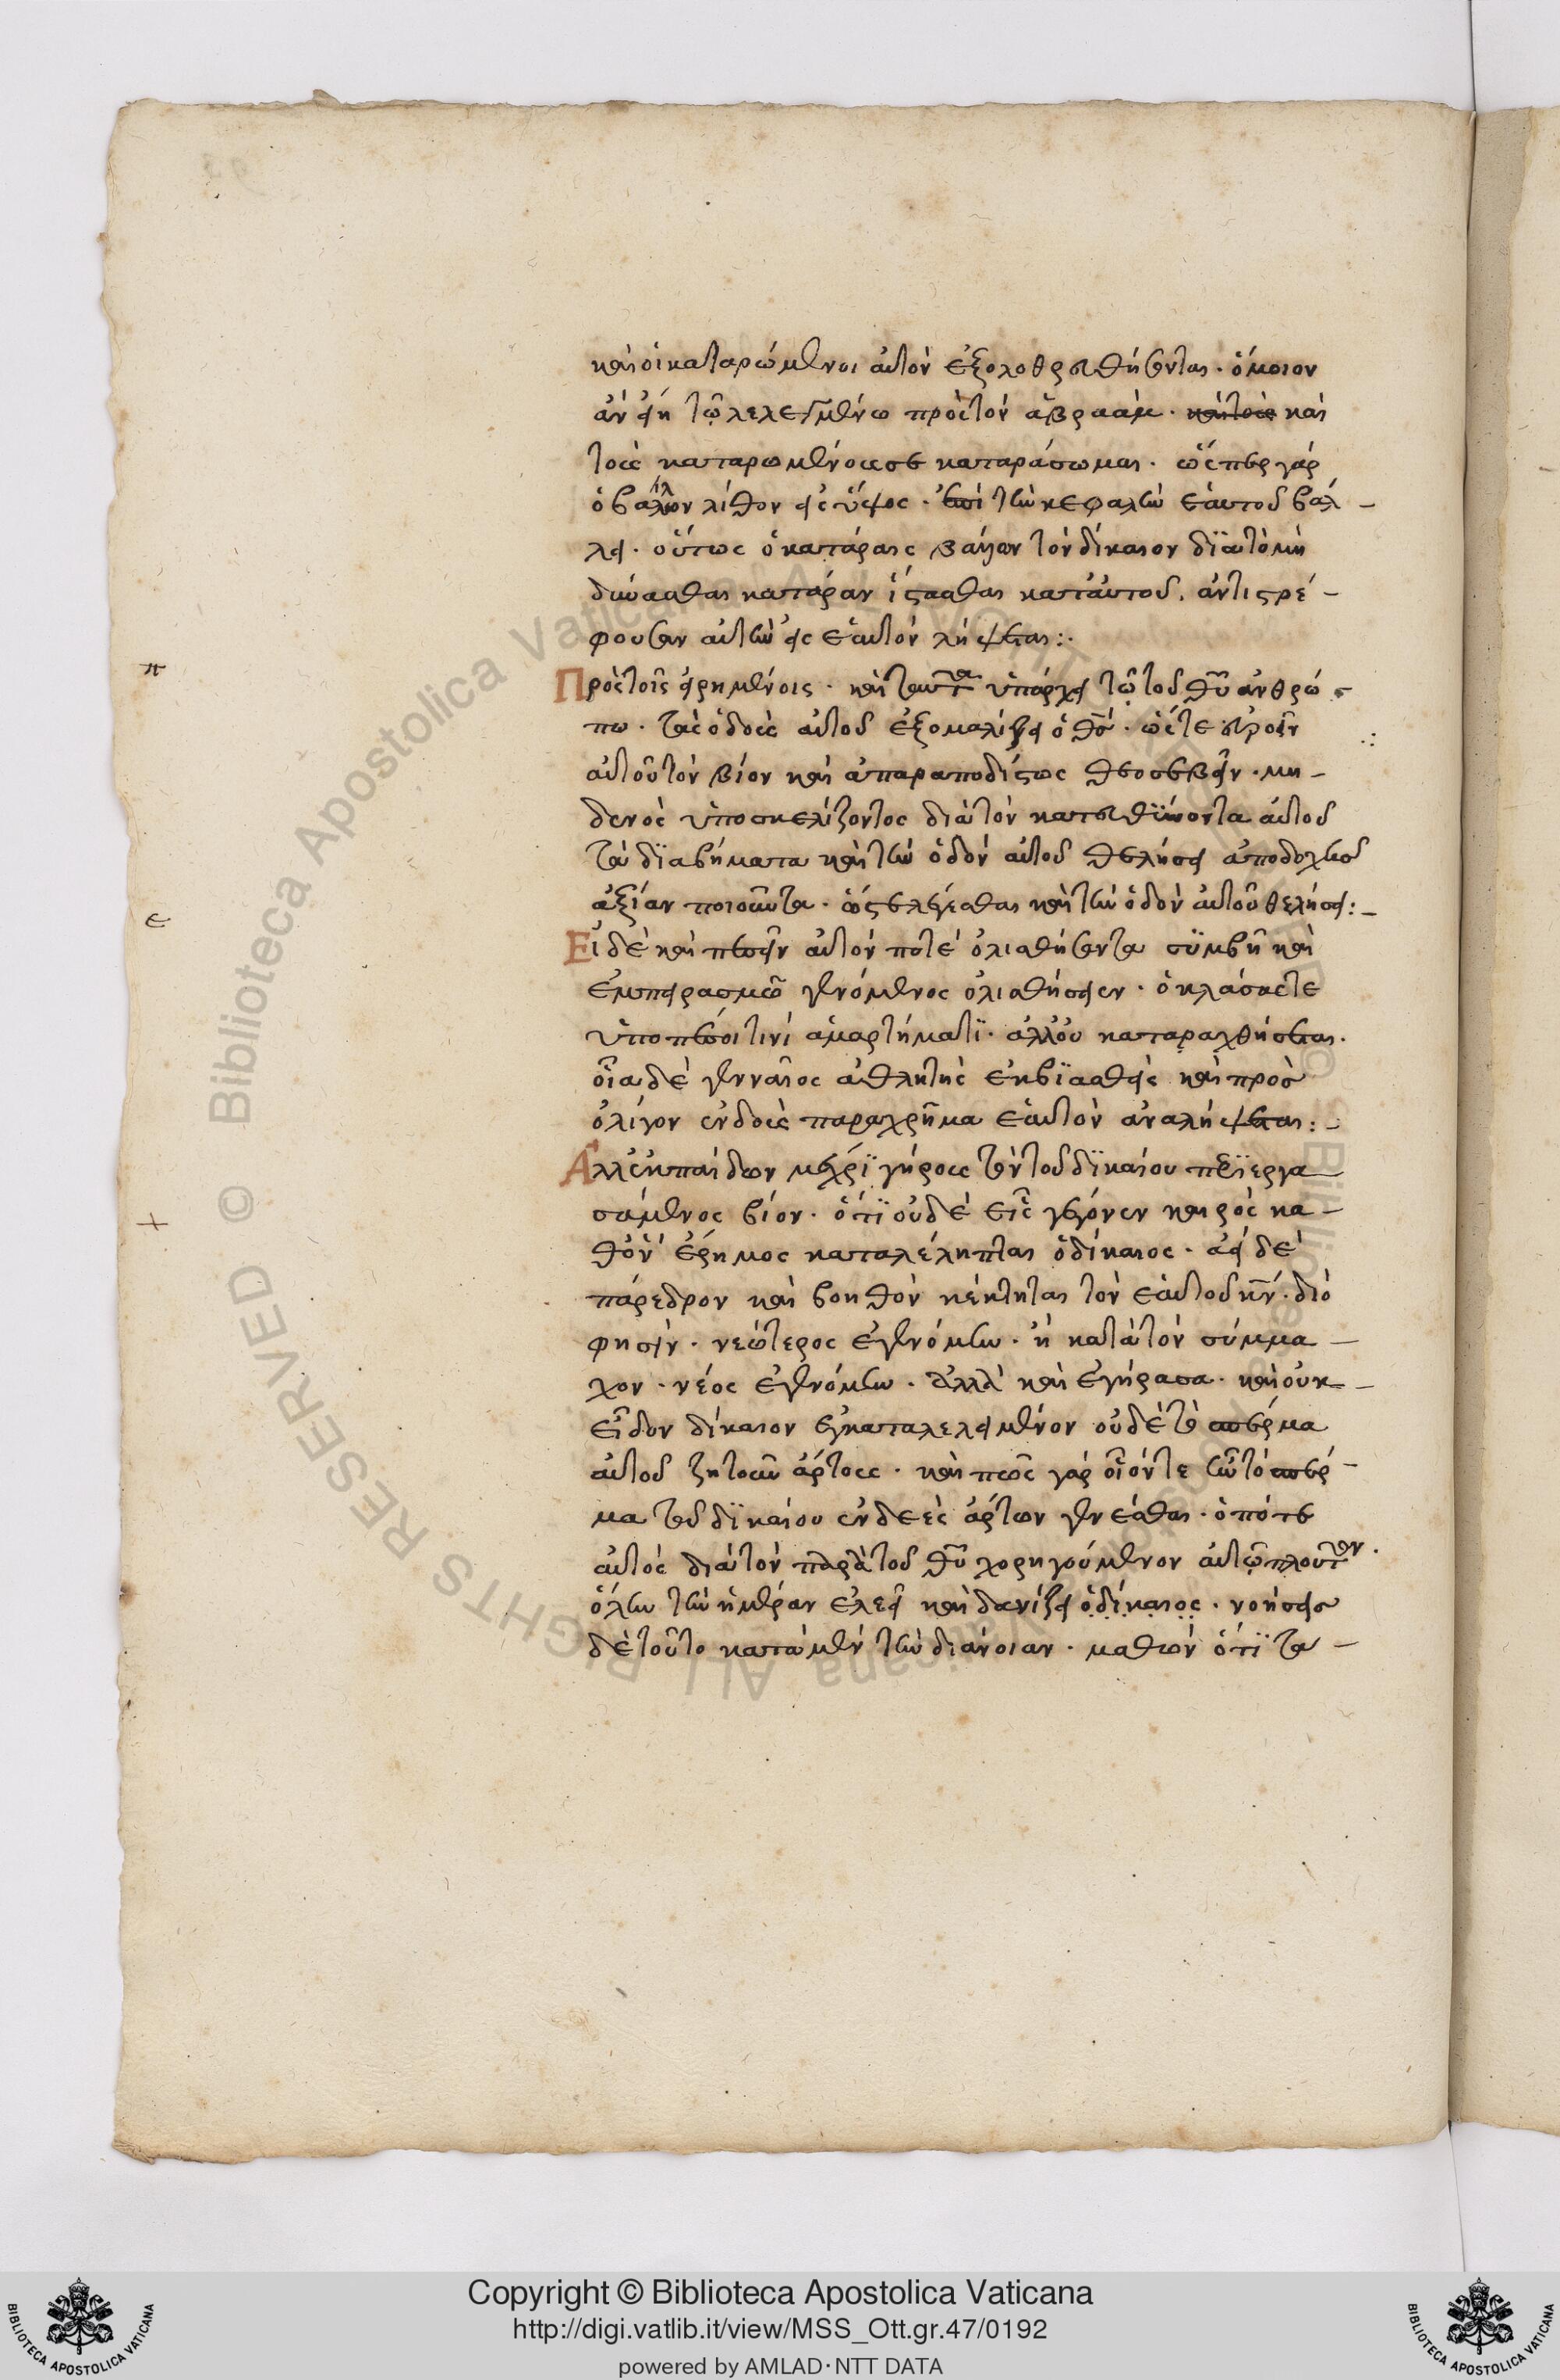 καὶ οἱ καταρώμενοι αὐτὸν ἐξολοθρευθήσονται· ὅμοιον
ἂν εἴη τῷ λελεγμένω πρὸς τὸν ἀβραάμ· καὶ τοὺς καὶ
τοὺς καταρωμένους σε καταράσωμαι· ὥσπερ γάρ
ὁ βάλλων λίθον εἰς ὕψος· ἐπὶ τὴν κεφαλὴν ἑαυτοῦ βάλ-
λει· οὕτως ὁ κατάραις βάλλων τὸν δίκαιον διὰ τὸ μὴ
δύνασθαι κατάραν ἵστασθαι κατ' αὐτοῦ. ἀντιστρέ-
φουσαν αὐτὴν εἰς ἑαυτὸν λήψεται:·
π
Πρὸς τοῖς εἰρημένοις· καὶ ταῦτα ὑπάρχει τῷ τοῦ θυ ἀνθρώ-
πω· τὰς ὁδοὺς αὐτοῦ ἐξομαλίζει ὁ θς· ὥστε εὐροεῖν
αὐτοῦ τὸν βίον καὶ ἀπαραποδίστως θεοσεβεῖν· μη-
δενὸς ὑποσκελίζοντος διὰ τὸν κατευθύνοντα αὐτοῦ
τὰ διαβήματα καὶ τὴν ὁδὸν αὐτοῦ θελήσει ἀποδοχῆς
ε
ἀξίαν ποιοῦντα· ὡς λέγεσθαι καὶ τὴν ὁδὸν αὐτοῦ θελήσει:-
Εἰ δὲ καὶ πεσεῖν αὐτόν ποτὲ ὀλισθήσαντα συμβῆ καὶ
ἐμπειρασμῶ γενόμενος ὀλισθήσειεν· ὀκλάσαι τε
ὑποπέσοι τινὶ ἁμαρτήματι· ἀλλ' οὐ καταραχθήσεται·
οἷα δὲ γενναῖος ἀθλητὴς ἐκβιασθεὶς καὶ πρὸς
ὀλίγον ἐνδοὺς παραχρῆμα ἑαυτὸν ἀναλήψεται:-
Ἀλλ' ἐκ παίδων μέχρι γήρους τὸν τοῦ δικαίου περιεργα-
+
σάμενος βίον· ὅτι οὐδὲ εἷς γέγονεν καιρὸς κα-
θ' ὃν ἔρημος καταλέλειπται ὁ δίκαιος· ἀεὶ δὲ
πάρεδρον καὶ βοηθὸν κέκτηται τὸν ἑαυτοῦ κν· διό
φησὶν· νεώτερος ἐγενόμην· ἢ κατὰ τὸν σύμμα-
χον· νέος ἐγενόμην· ἀλλὰ καὶ ἐγήρασα· καὶ οὐκ
εἶδον δίκαιον ἐγκαταλελειμένον οὐδὲ τὸ σπέρμα
αὐτοῦ ζητοῦν ἄρτους· καὶ πῶς γάρ οἷόν τε ἦν τὸ σπέρ-
μα τοῦ δικαίου ἐνδεὲς ἄρτων γενέσθαι· ὁπότε
αὐτὸς διὰ τὸν παρὰ τοῦ θυ χορηγούμενον αὐτῷ πλοῦτον·
ὅλην τὴν ἡμέραν ἐλεεῖ καὶ δανίζει ὁ δίκαιος· νοήσεις
δὲ τοῦτο κατὰ μὲν τὴν διάνοιαν· μαθὼν ὅτι τα-
Copyright © Biblioteca Apostolica Vaticana
http://digi.vatlib.it/view/MSS_Ott.gr.47/0192
powered by AMLAD·NTT DATA